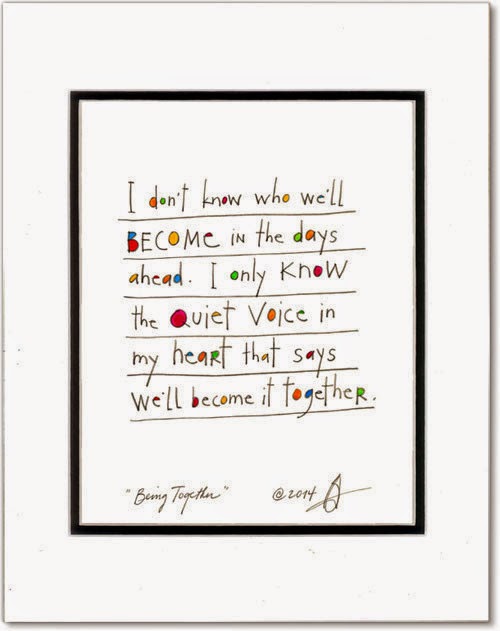 I don't know who we'll
BECOME in the days
ahead. I only KNOW
the Quiet Voice in
my heart that says
we'll become it together.
"Being Together" @2014